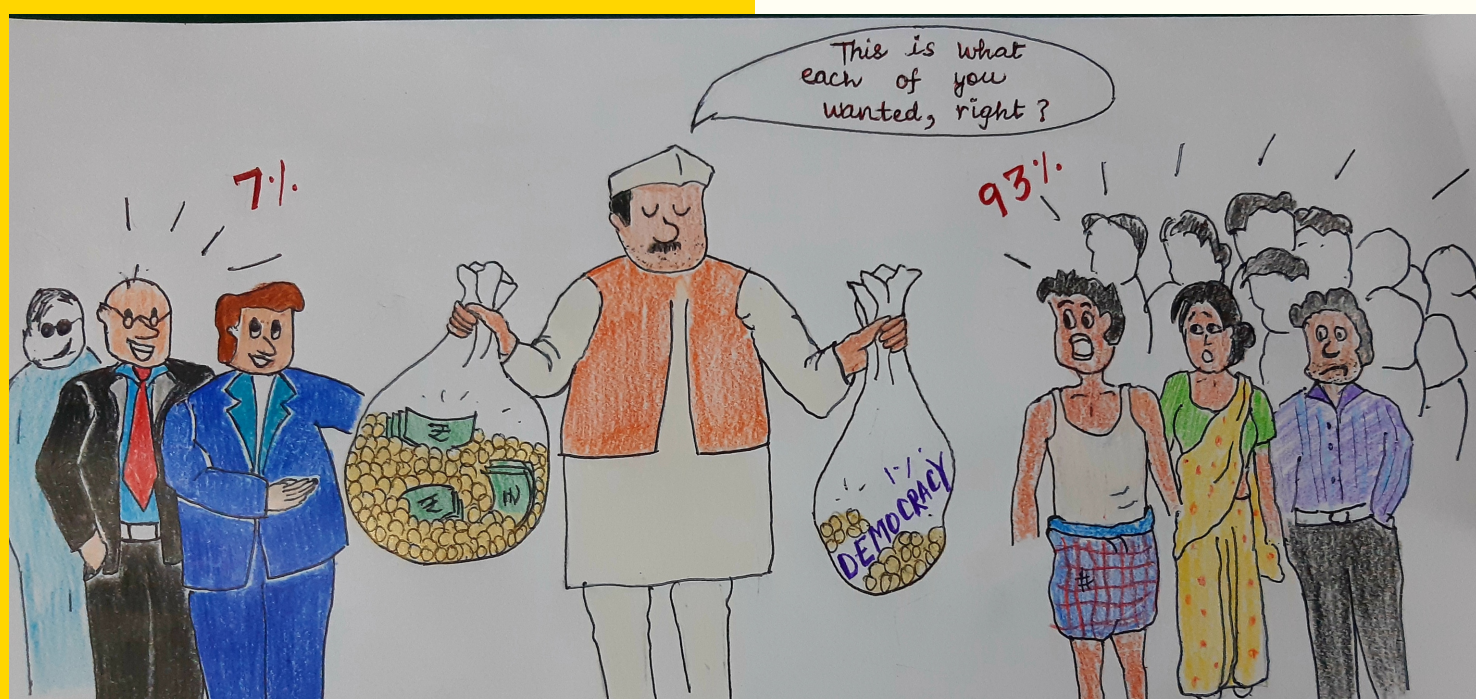 This is what
each of you
wanted, right ?
7%
93%
₹
₹
DEMOCRACY